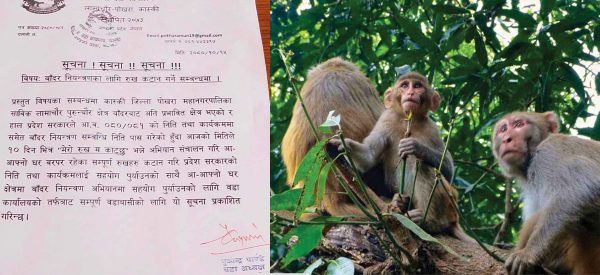 लामाचौर-पोखरा, कास्की
स्थापित २०५३
Email:
मिति: २०८०/१०/१५
सूचना ! सूचना !! सूचना !!!
विषय: बाँदर नियन्त्रणका लागि रुख कटान गर्ने सम्बन्धमा।
प्रस्तुत विषयका सम्बन्धमा कास्की जिल्ला पोखरा महानगरपालिका
साविक लामाचौर पुरुन्चौर क्षेत्र बाँदरबाट अति प्रभावित क्षेत्र भएको र
हाल प्रदेश सरकारले आ.व. ०८०/०८१ को निति तथा कार्यक्रममा
समेत बाँदर नियन्त्रण सम्बन्धि निति पास गरेको हुँदा आजको मितिले
१० दिन भित्र "मेरो रुख म काट्छु" भन्ने अभियान संचालन गरि आ-
आफ्नो घर वरपर रहेका सम्पूर्ण रुखहरु कटान गरि प्रदेश सरकारको
निति तथा कार्यक्रमलाई सहयोग पुर्याउनको साथै आ-आफ्नो घर
क्षेत्रमा बाँदर नियन्त्रण अभियानमा सहयोग पुर्याउनको लागि वडा
कार्यालयको तर्फबाट सम्पूर्ण वडावासीको लागि यो सूचना प्रकाशित
गरिन्छ।
वडा अध्यक्ष